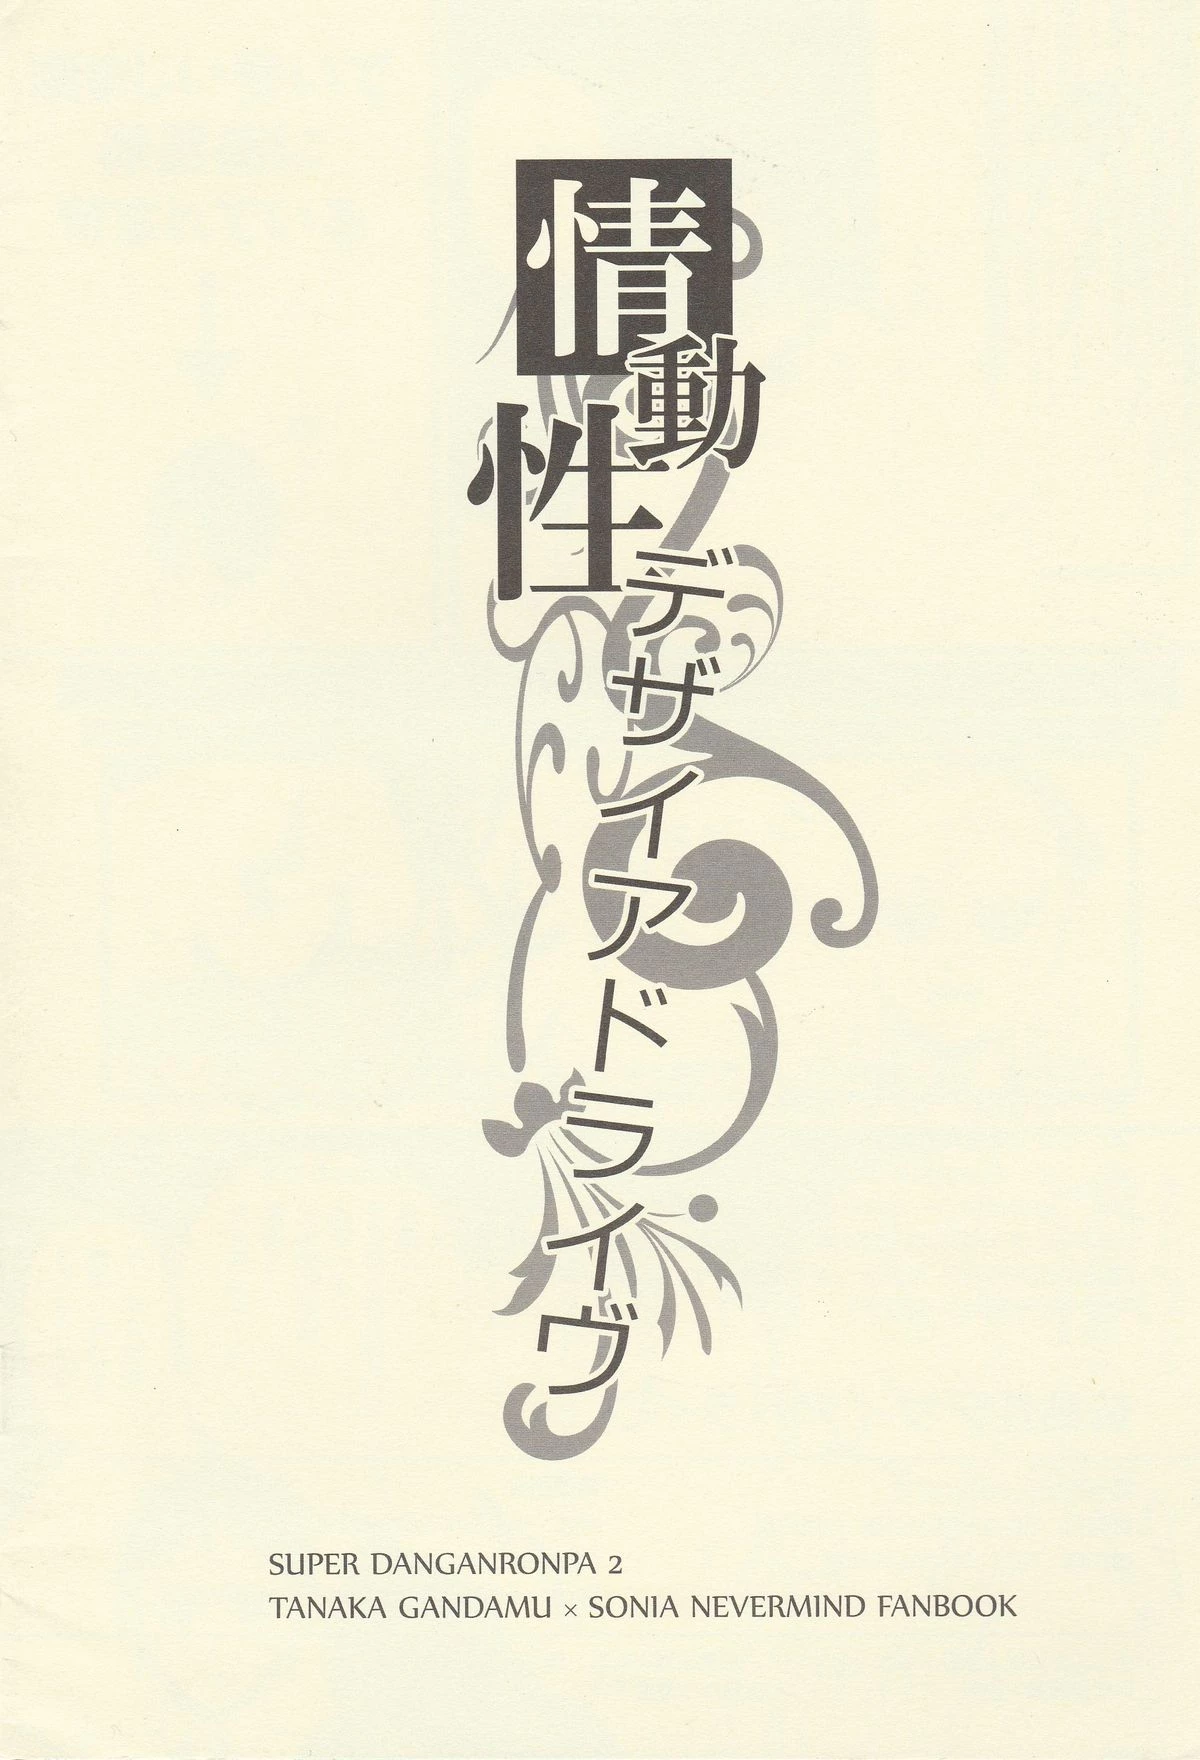 情動性デザイアドライヴ
SUPER DANGANRONPA 2
TANAKA GANDAMU × SONIA NEVERMIND FANBOOK